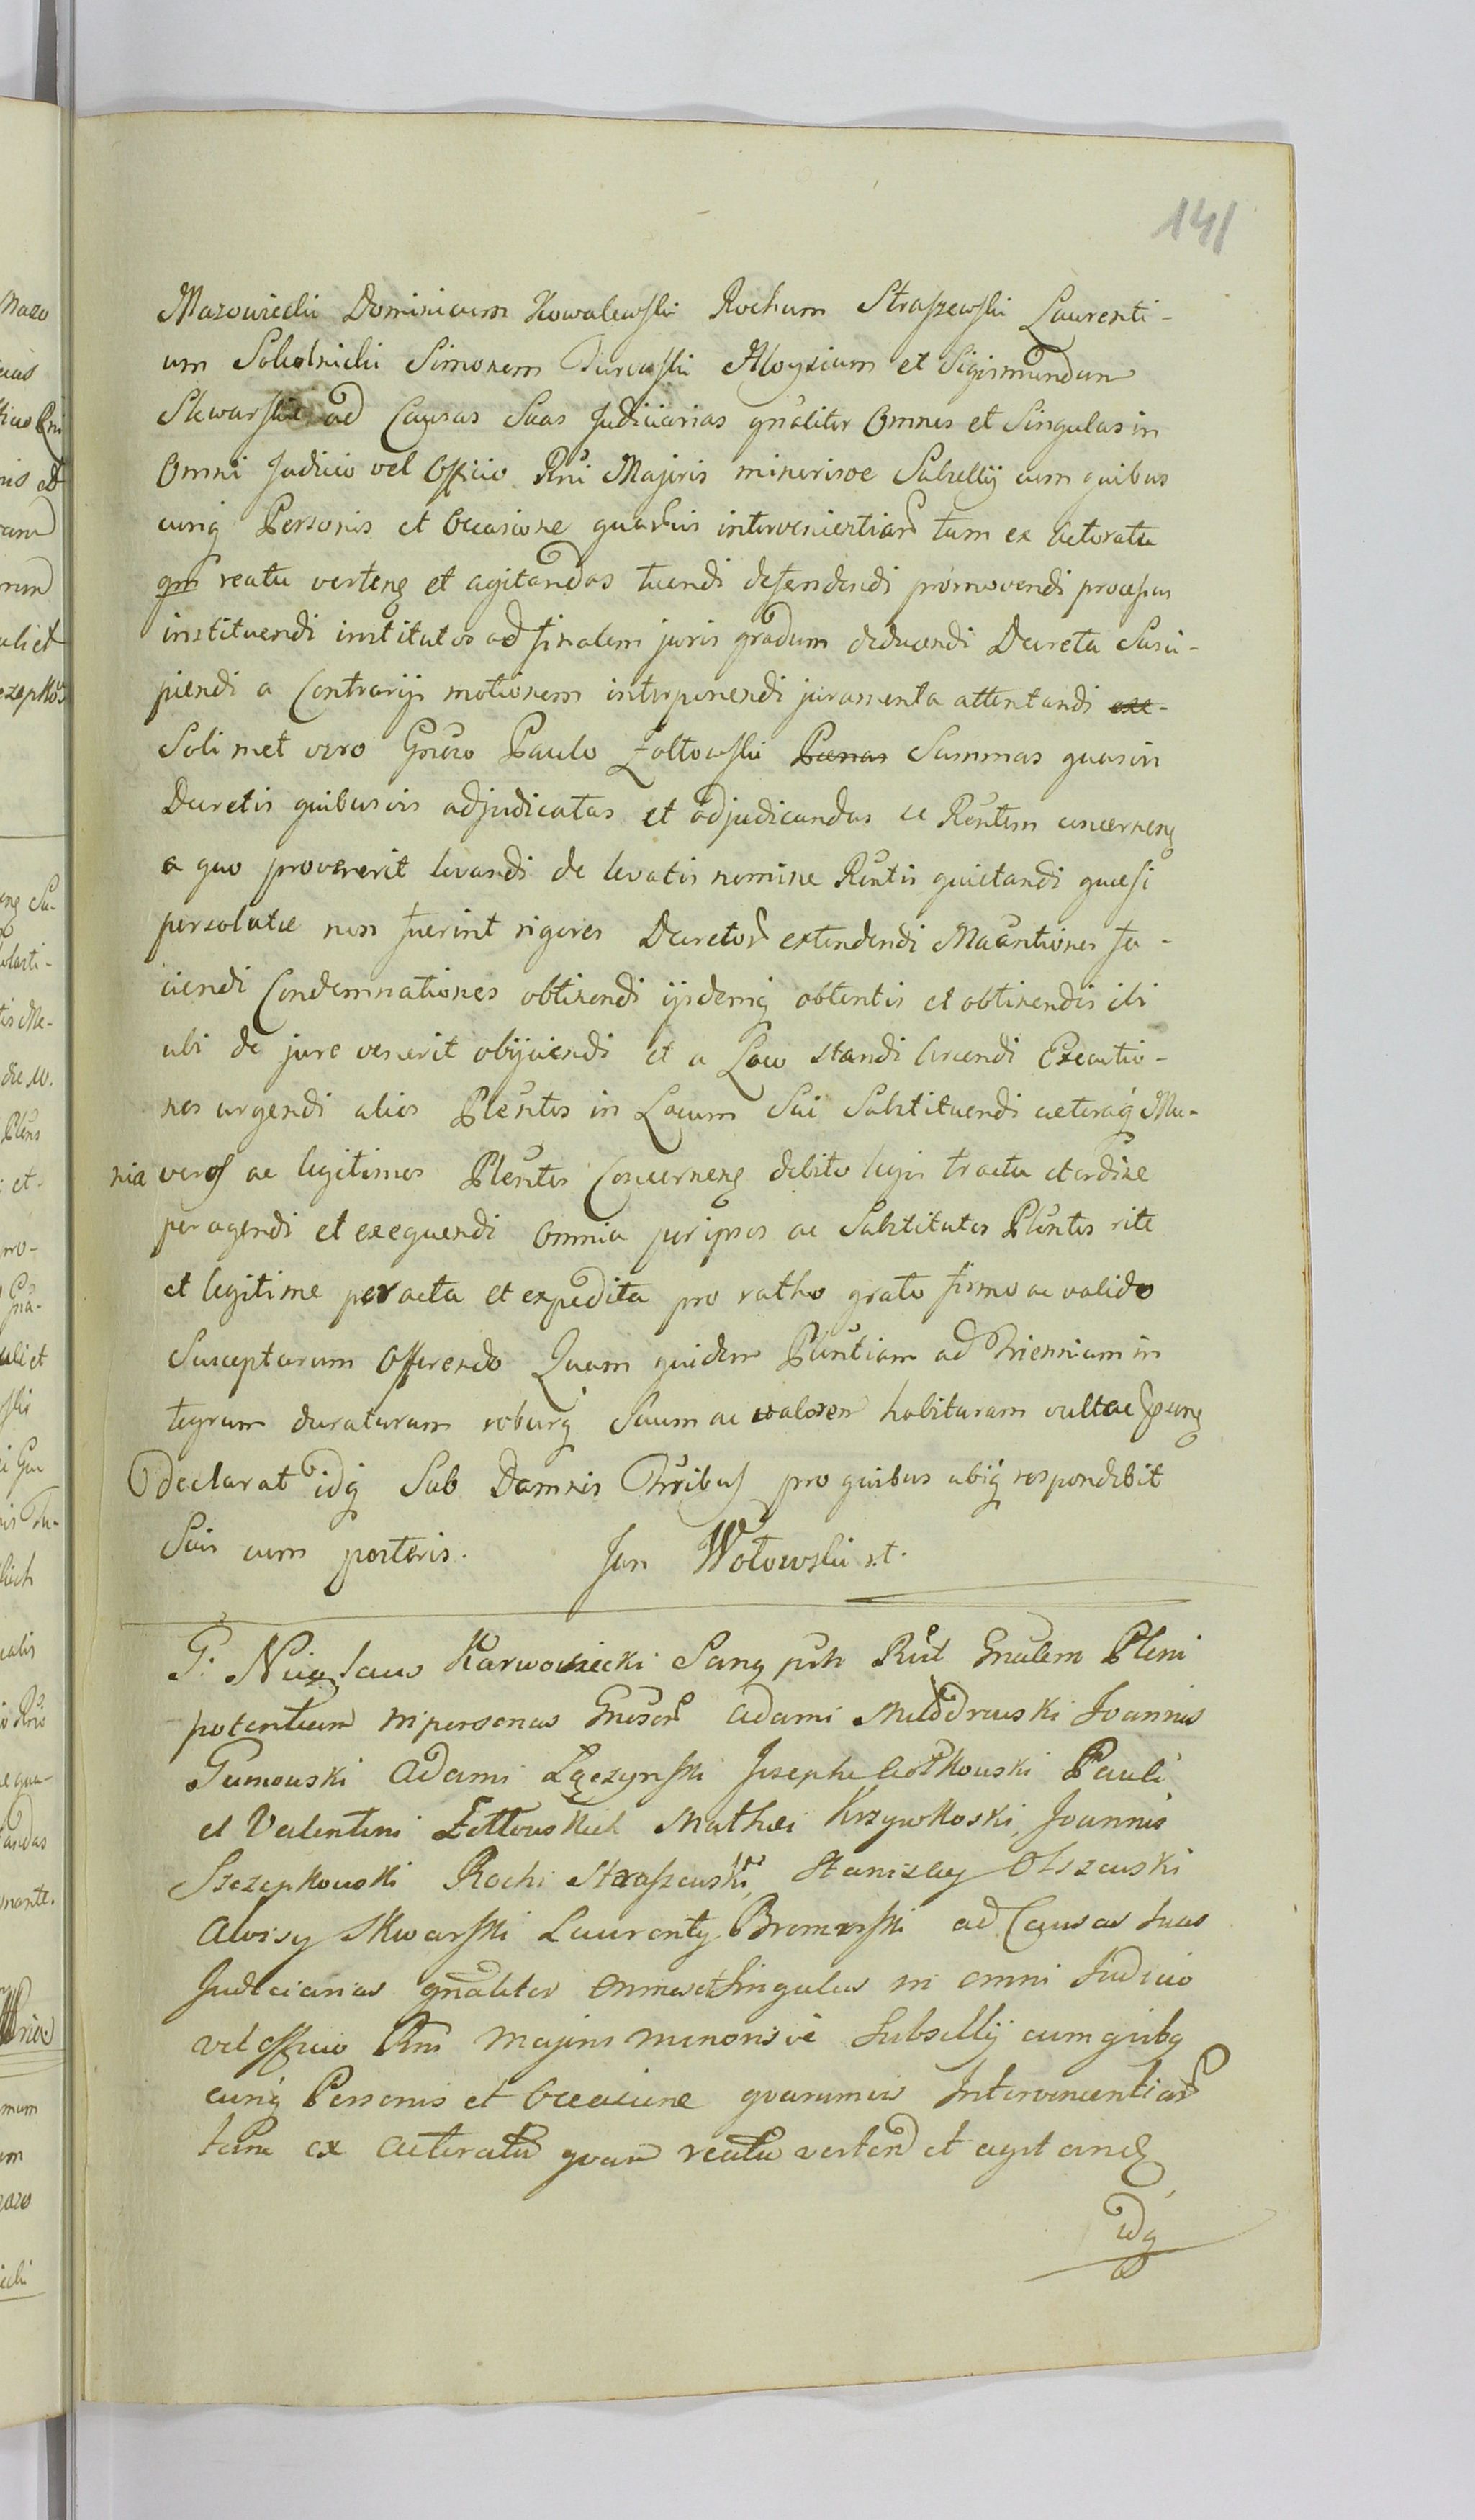 141
Mazowiecki Dominicum Kowalewski Rochum Straszewski Laurenti-
um Sokolnicki Simonem Turowski Aloysium et Sigismundum
Skwarski ad Causas Suas Judiciarias gnaliter Omnes et Singulas in
Omni Judicio vel Officio Rni Majoris minorisve Subsellij cum quibus
cunq Personis et Occasione quarumvis intervenientiar tam ex Actoratu
qm reatu verteng et agitandas tuendi defendendi promovendi processus
instituendi institutos ad finalem juris gradum deducendi Decreta Susci-
piendi a Contrarijs motionem interponendi juramenta attentandi exe-
Soli met vero Gnoso Paulo Żołtowski Paenas Summas quasvis
Decretis quibusvis adjudicatas et adjudicandas ac Rentem concerneng
a quo provenerit levandi de levatis nomine Rentis quietandi quae si
persolutae non fuerint rigores Decretor extendendi Macntiones fa-
ciendi Condemnationes obtinendi ijsdemq obtentis et obtinendis ibi
ubi de jure venerit obijciendi et a Loco standi Arcendi Executio-
nes urgendi alios Plentes in Locum Sui Substituendi caeteraq Mu-
nia veros ac legitimos Plentes Concerneng debito legis tractu et ordine
peragendi et exequendi Omnia per ipsos ac Substitutos Plentes rite
et legitime peracta et expedita pro ratho grato firmo ac valido
Suscepturum Offerendo Quam quidem Plentiam ad Trienniam in
tegrum duraturam roburq Suum ac valorem habituram vult ac
declarat idq Sub Damnis Trribus pro quibus ubiq respondebit
Suis cum posteris. Jan Wołowski
G: Karwowiecki Sang Gnalem Pleni
potentium in personas Gnosor Adami Joannis
Gumowski Adami Łączynski Josephi Pauli
et Valentini Żołtowskich Mathei Krzywkoski Joannis
Szczepkowski Rochi Straszewski Stanislay Olszewski
Aloisy Skwarski Laurenty ad Causas suas
Judiciarias gnaliter omnes et Singulas in omni Judicio
vel officio Rni Majoris minorisve Subsellij cum quibq
cunq Personis et Occasione quarumvis Intervenientiar
tam ex Actoratu quam reatu vertend et agitand
idq